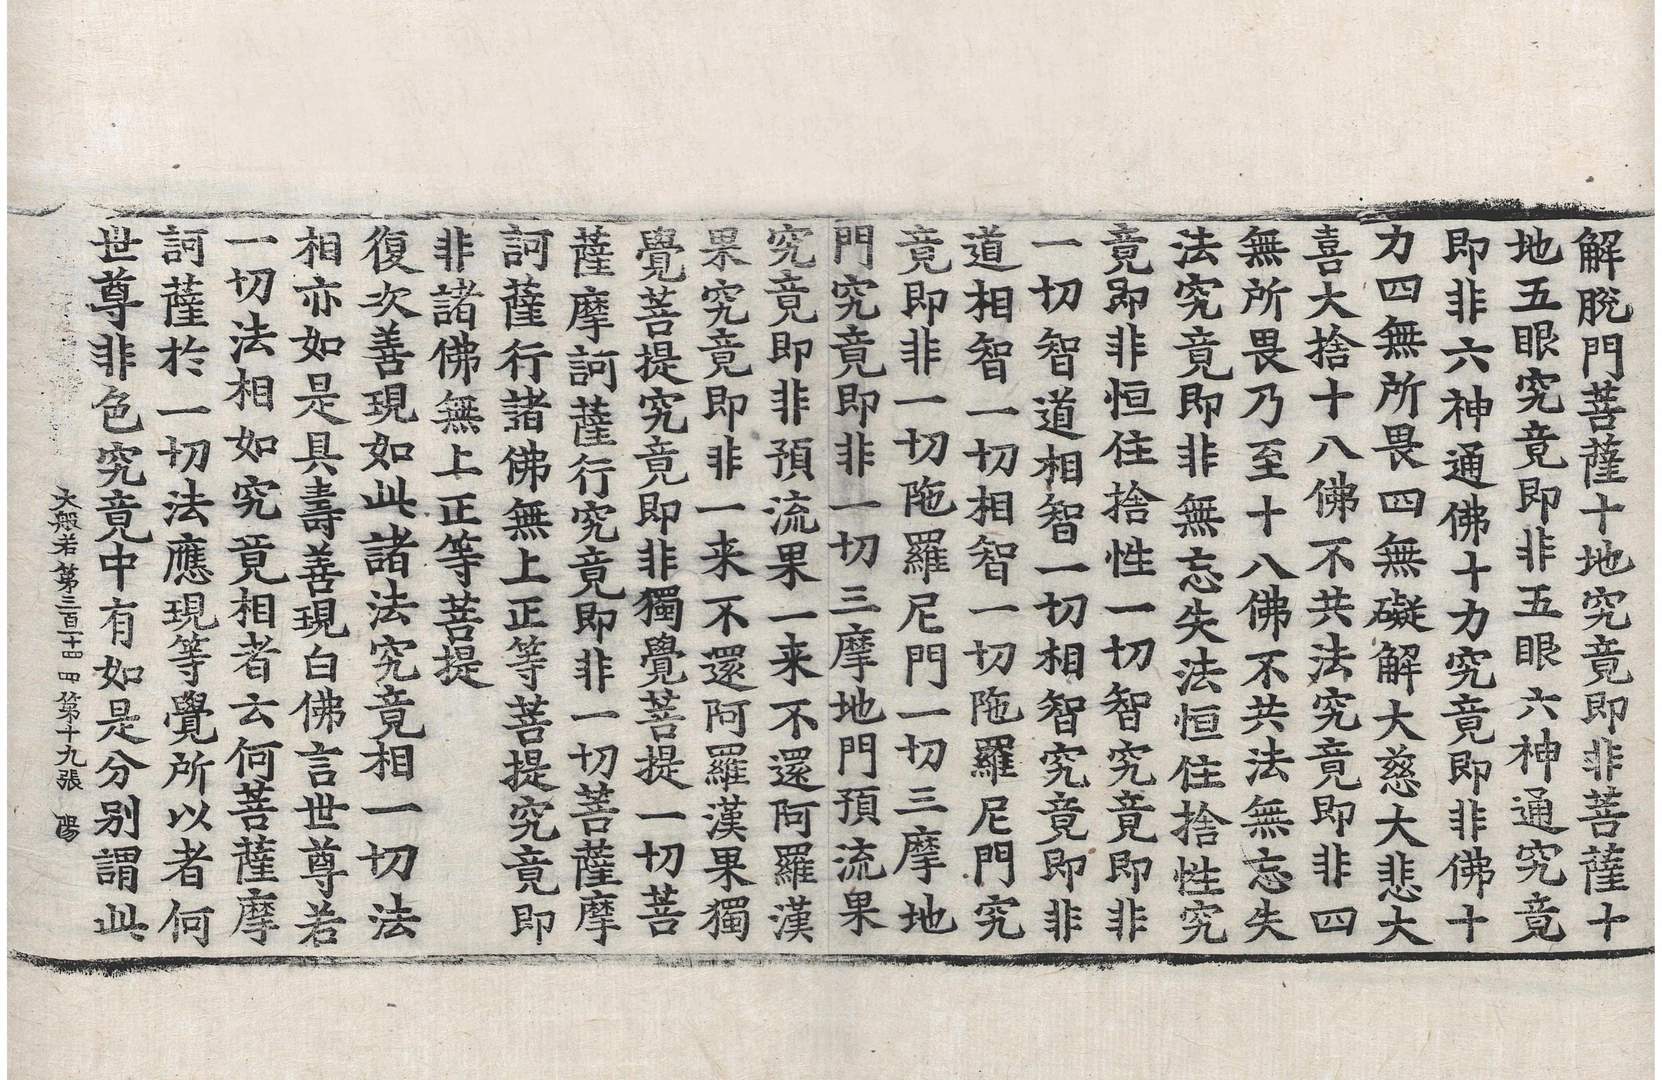 解脫門菩薩十地究竟即非菩薩十
地五眼究竟即非五眼六神通究竟
即非六神通佛十力究竟即非佛十
力四無所畏四無礙解大慈大悲大
喜大捨十八佛不共法究竟即非四
無所畏乃至十八佛不共法無忘失
法究竟即非無忘失法恒住捨性究
竟即非恒住捨性一切智究竟即非
一切智道相智一切相智究竟即非
道相智一切相智一切陁羅尼門究
竟即非一切陁羅尼門一切三摩地
門究竟即非一切三摩地門預流果
究竟即非預流果一来不還阿羅漢
果究竟即非一来不還阿羅漢果獨
覺菩提究竟即非獨覺菩提一切菩
薩摩訶薩行究竟即非一切菩薩摩
訶薩行諸佛無上正等菩提究竟即
非諸佛無上正等菩提
復次善現如此諸法究竟相一切法
相亦如是具壽善現白佛言世尊若
一切法相如究竟相者云何菩薩摩
訶薩於一切法應現等覺所以者何
世尊非色究竟中有如是分別謂此
大般若第三百二十四 四 第十九張 陽